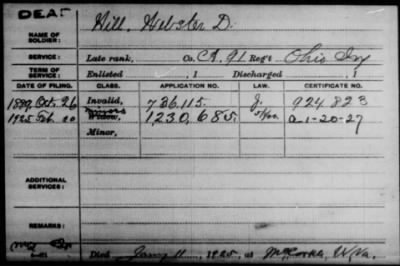 DEAF
Hill, Webster D.
NAME OF SOLDIER:
SERVICE: Late rank, Co. A, 91 Reg't Ohio Inf
TERM OF SERVICE: Enlisted , 1 Discharged , 1
DATE OF FILING. CLASS. APPLICATION NO. LAW. CERTIFICATE NO.
1889, Oct. 26 Invalid, 736,115. 924,823
1925 Feb 20 Widow, 1,230,685. A-1-20-27
Minor,
ADDITIONAL SERVICES:
REMARKS:
Died Jany 11, 1925, at W.Va.